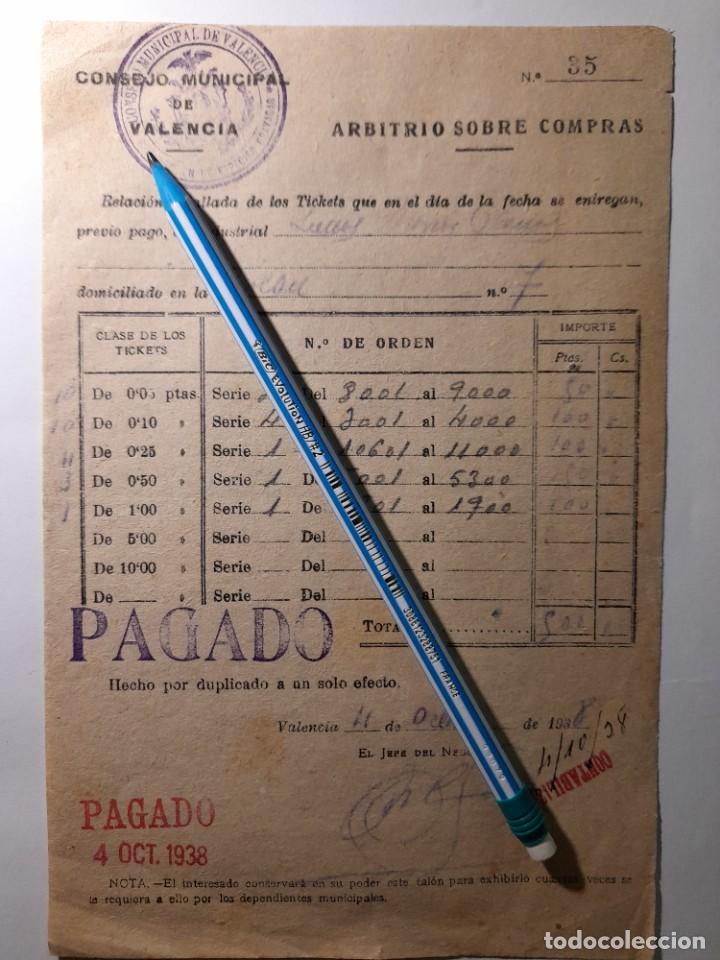 CONSEJO MUNICIPAL DE VALENCIA
CONSEJO MUNICIPAL
DE
VALENCIA
N.º 35
ARBITRIO SOBRE COMPRAS
Relación de los Tickets que en el día de la fecha se entregan,
previo pago,
domiciliado en la n.º 7
CLASE DE LOS TICKETS
N.º DE ORDEN
IMPORTE
Ptas. Cs.
10 De 0'05 ptas. Serie Del 8001 al 9000 50
10 De 0'10 » Serie 4 3001 al 4000 100
4 De 0'25 » Serie 1 10601 al 11000 100
3 De 0'50 » Serie 1 al 5300 150
1 De 1'00 » Serie 1 De al 1900 100
De 5'00 » Serie Del al
De 10'00 » Serie Del al
De » Serie Del al
PAGADO
TOTA 500
Hecho por duplicado a un solo efecto.
Valencia 4 de de 1938
EL JEFE DEL
4/10/38
PAGADO
4 OCT. 1938
NOTA.—El interesado conservará en su poder este talón para exhibirlo cuantas veces se
le requiera a ello por los dependientes municipales.
BIC EVOLUTION HB/#2
FRANCE
todocoleccion.net